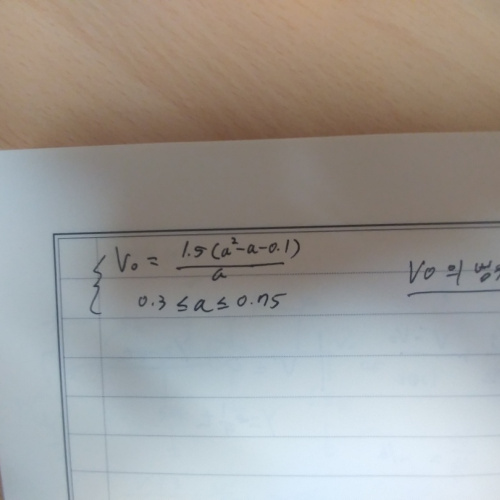 V₀ = 1.5(a²-a-0.1) / a
0.3 ≤ a ≤ 0.75
V₀의